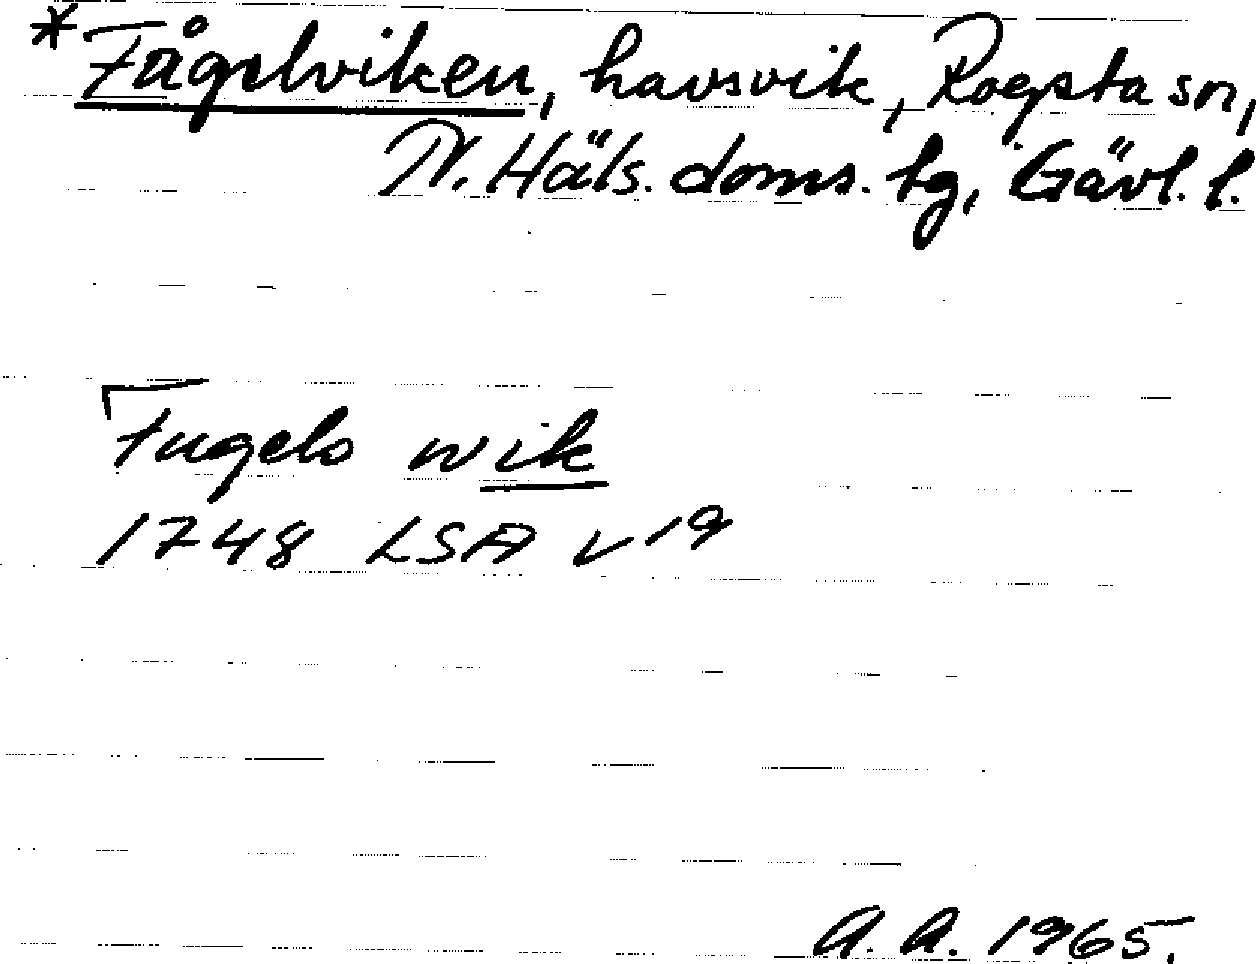 *Fågelviken, havsvik, Rogsta sn,
N. Häls. doms. tg, Gävl. l.
Fugels wik
1748 LSA v 19
A. A. 1965.